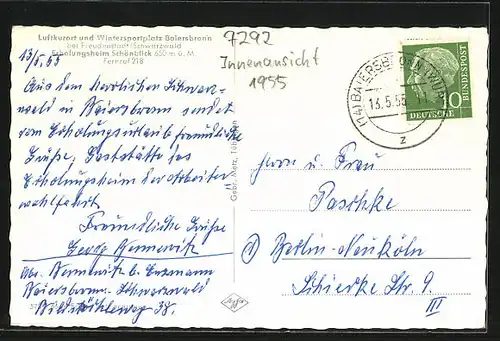 Luftkurort und Wintersportplatz Baiersbronn
bei Freudenstadt/Schwarzwald
Erholungsheim Schönblick 650 m ü. M.
Fernruf 218
7292
Innenansicht
1955
13/5.55
Aus dem herrlichen Schwarz-
wald in Baiersbronn sendet
vom Erholungsurlaub freundliche
Grüße, Gaststätte des
Erholungsheim der Arbeiter
wohlfahrt
Freundliche Grüße
Georg
Abs.
Baiersbronn-Schwarzwald
38.
Gebr. Metz, Tübingen
(14b) BAIERSBRONN
13.5.55
z
10
DEUTSCHE
BUNDESPOST
Herrn u. Frau
Paschke
Berlin-Neuköln
Schierke Str. 9
III